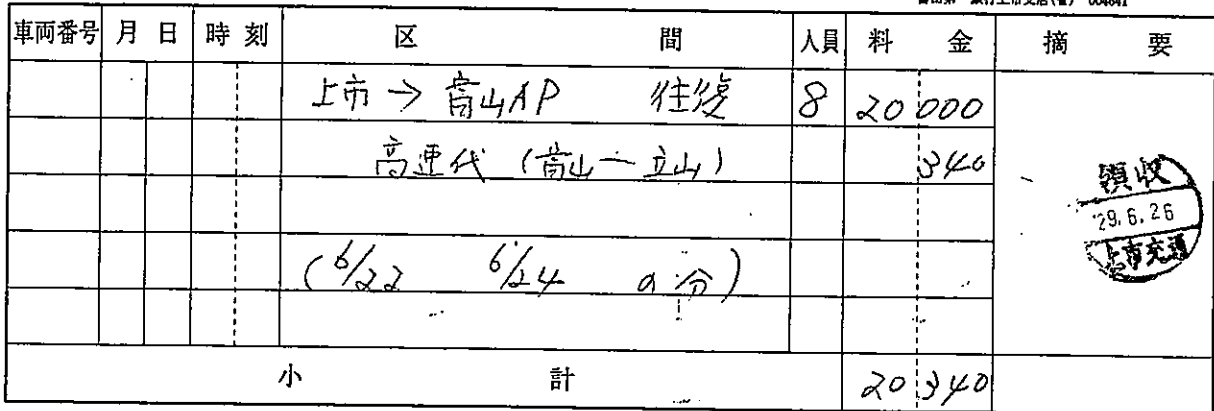 車両番号 月 日 時 刻 区 間 人員 料 金 摘 要
上市 → 富山AP 往復 8 20 000
高速代 (富山ー立山) 340
領収
29.6.26
上市交通
(6/22 6/24 の分)
小 計 20 340